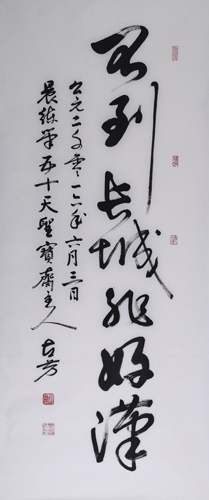 不到长城非好漢
公元二〇零一六年六月三日
晨练第五十天聖寶齋主人
古芳